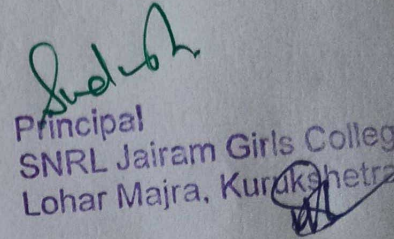 Principal
SNRL Jairam Girls Colleg
Lohar Majra, Kurukshetra